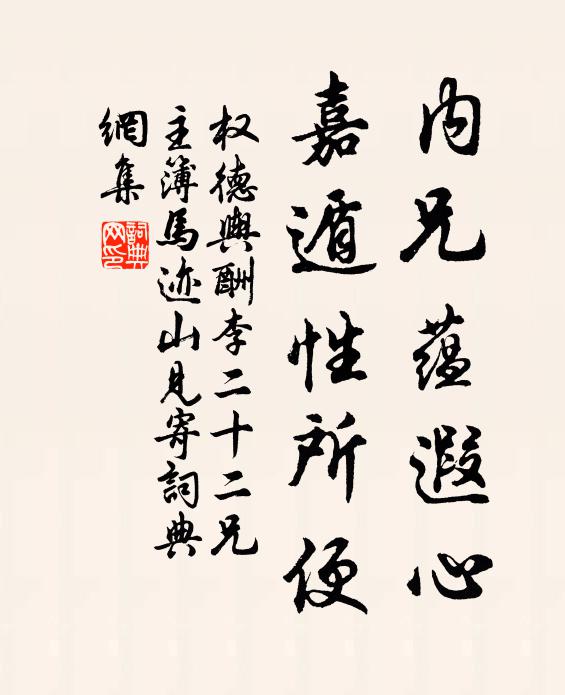 内兄蕴遐心
嘉遁性所便
权德舆酬李二十二兄
主簿馬迹山見寄詞典
網集
詞典网